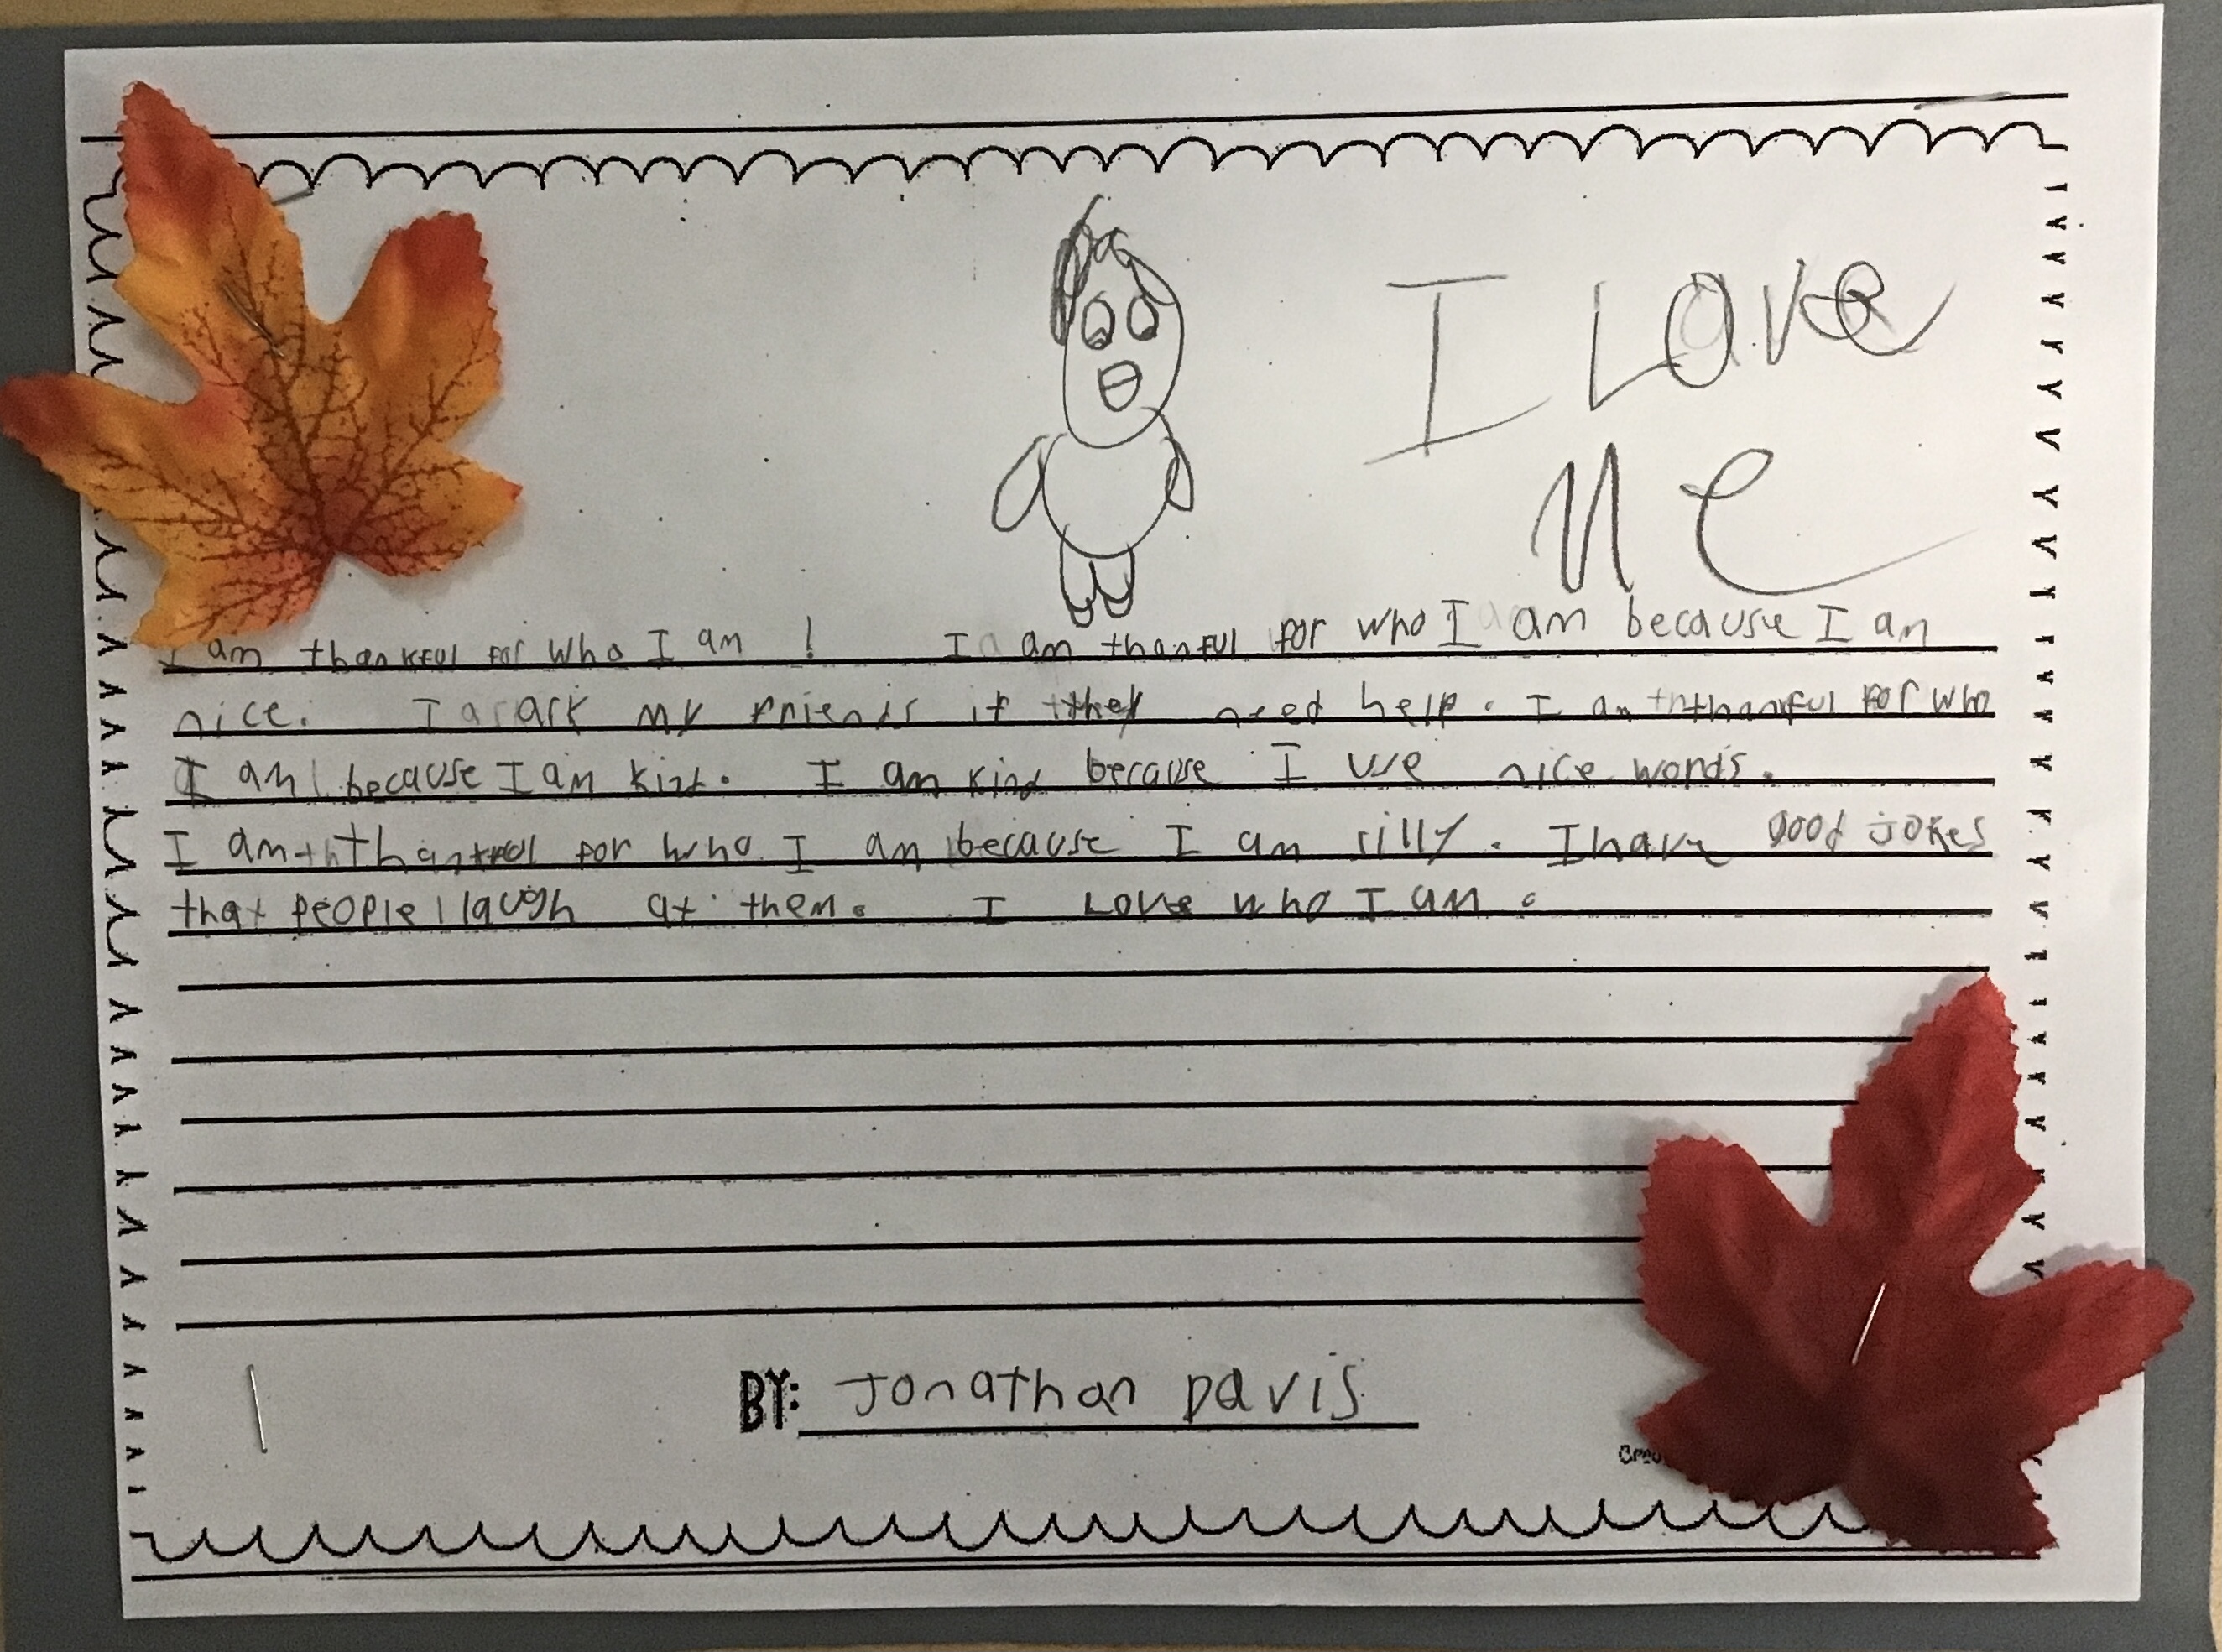 I Love
me
I am thankful for who I am ! I am thanful for who I am because I am
nice. I ask my friends if they need help. I am thanful for who
I am because I am kind. I am kind because I use nice words.
I am thankful for who I am because I am silly. I have good jokes
that people laugh at them. I Love who I am.
BY: Jonathan Davis